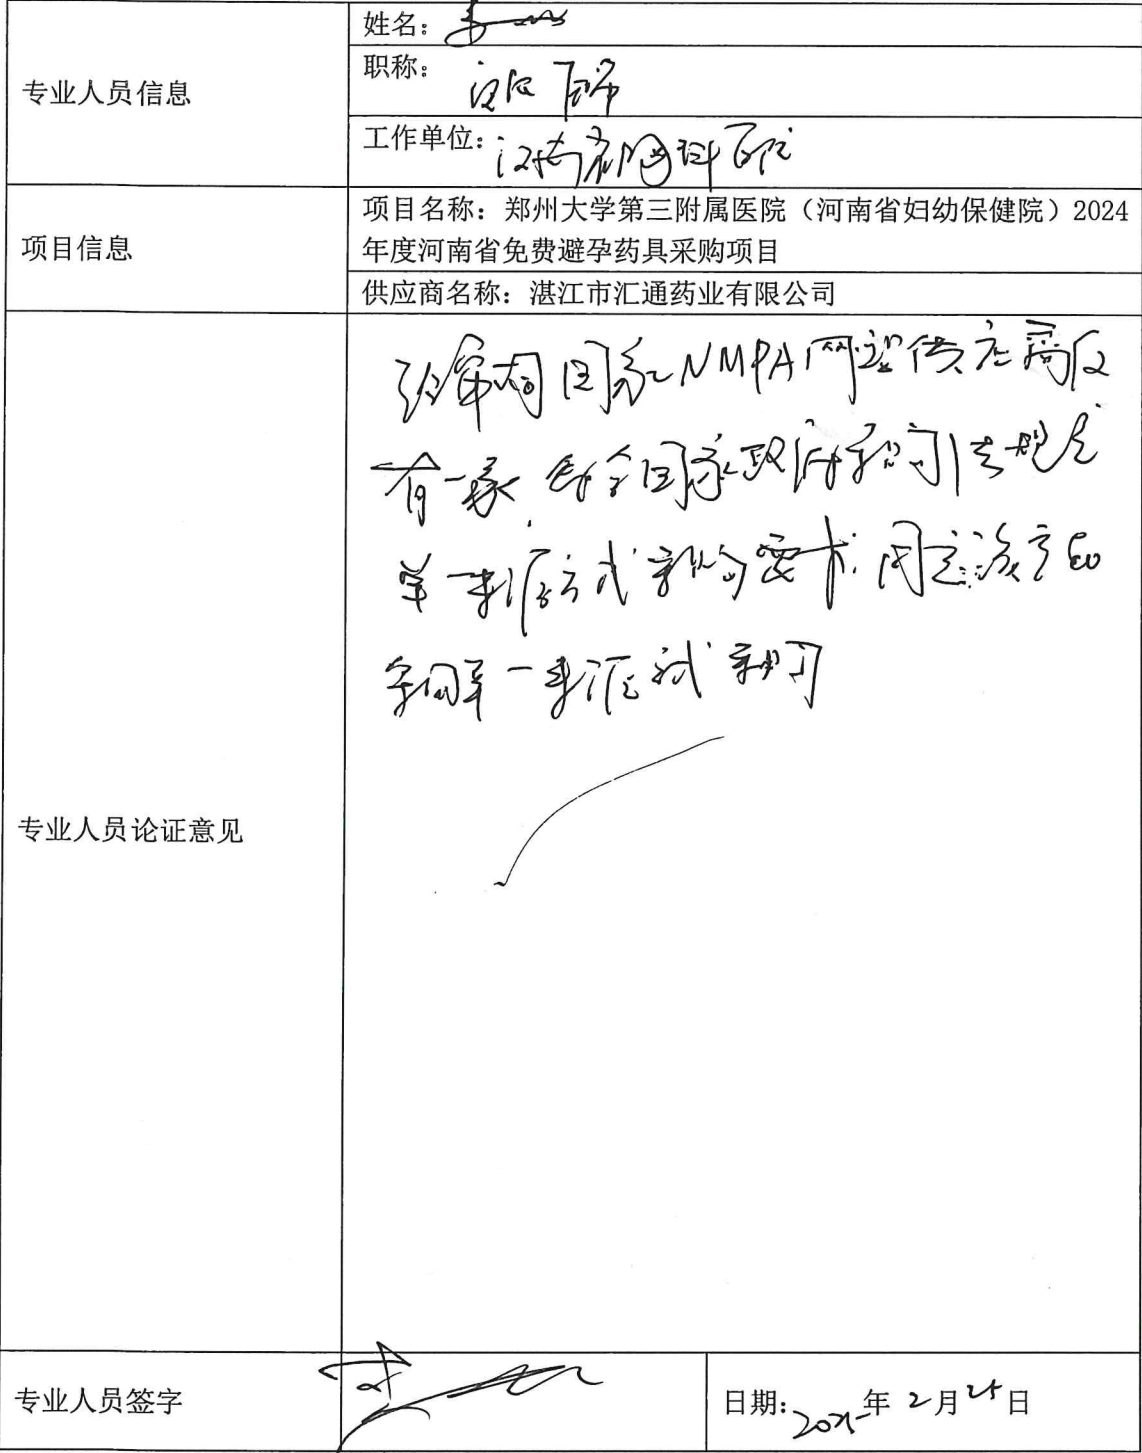 姓名：
专业人员信息
职称：
工作单位：河南省胸科医院
项目信息
项目名称：郑州大学第三附属医院（河南省妇幼保健院）2024
年度河南省免费避孕药具采购项目
供应商名称：湛江市汇通药业有限公司
专业人员论证意见
经审阅国家NMPA网站供应商仅
有一家 符合国家政府采购法规定
单一来源方式采购要求.同意该产品
采用单一来源方式采购
专业人员签字
日期：2025年2月25日